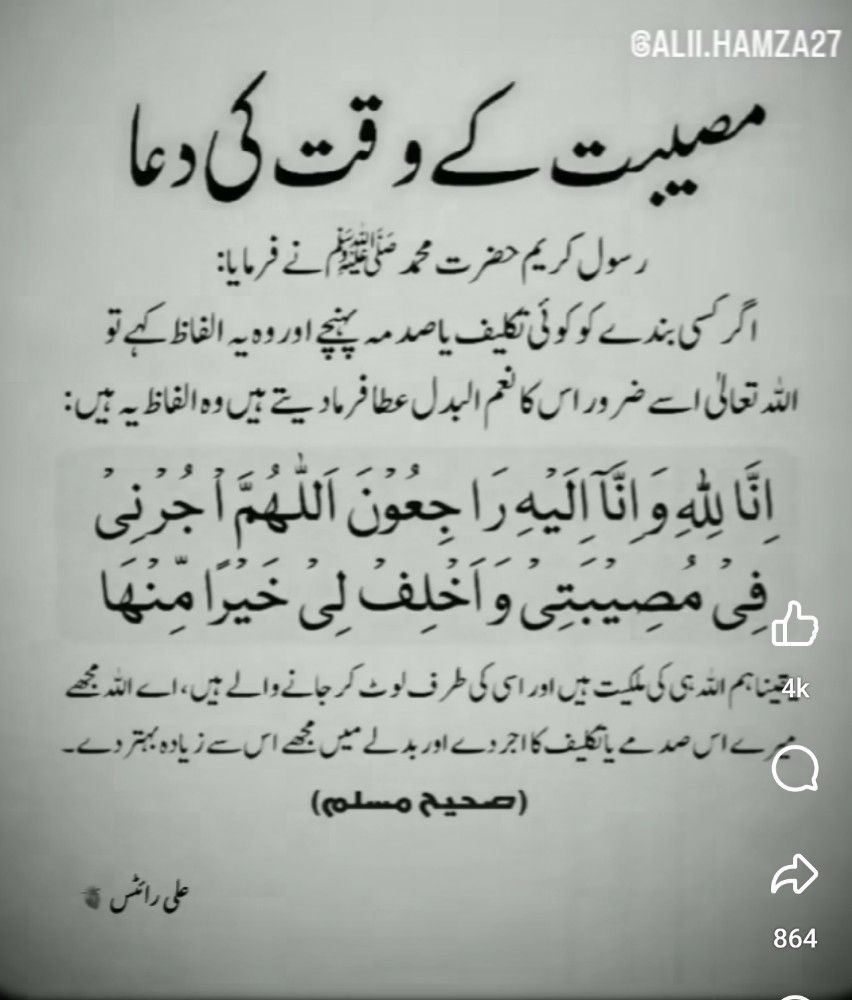 @ALII.HAMZA27
مصیبت کے وقت کی دعا
رسول کریم حضرت محمد ﷺ نے فرمایا:
اگر کسی بندے کو کوئی تکلیف یا صدمہ پہنچے اور وہ یہ الفاظ کہے تو
اللہ تعالیٰ اسے ضرور اس کا نعم البدل عطا فرما دیتے ہیں وہ الفاظ یہ ہیں:
اِنَّا لِلّٰهِ وَاِنَّآ اِلَيْهِ رَاجِعُوْنَ اَللّٰهُمَّ اْجُرْنِيْ
فِيْ مُصِيْبَتِيْ وَاَخْلِفْ لِيْ خَيْرًا مِّنْهَا
یقینا ہم اللہ ہی کی ملکیت ہیں اور اسی کی طرف لوٹ کر جانے والے ہیں، اے اللہ مجھے
4k
میرے اس صدمے یا تکلیف کا اجر دے اور بدلے میں مجھے اس سے زیادہ بہتر دے۔
(صحیح مسلم)
علی رائٹس
864